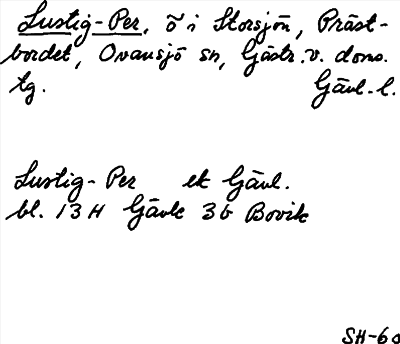 Lustig-Per, ö i Storsjön, Präst-
bordet, Ovansjö sn, Gästr. v. doms.
tg. Gävl. l.
Lustig-Per ek Gävl.
bl. 13 H Gävle 3b Bovik
SH-60